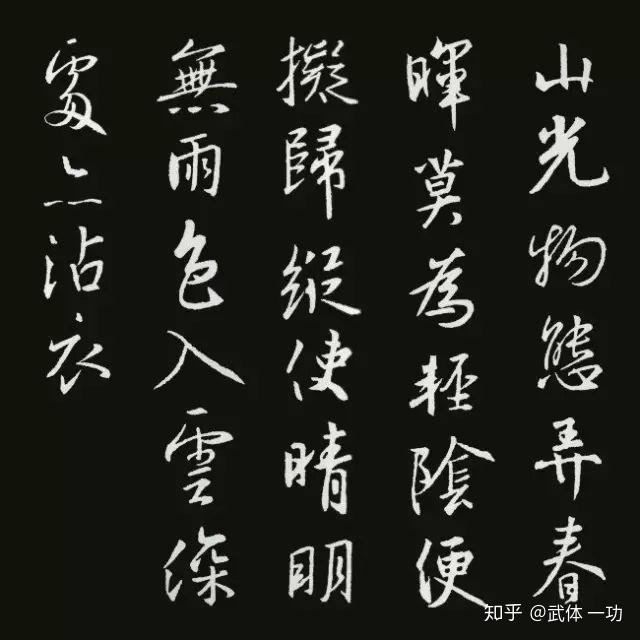 山光物態弄春
暉莫為輕陰便
擬歸縱使晴明
無雨色入雲深
處亦沾衣
知乎 @武体一功